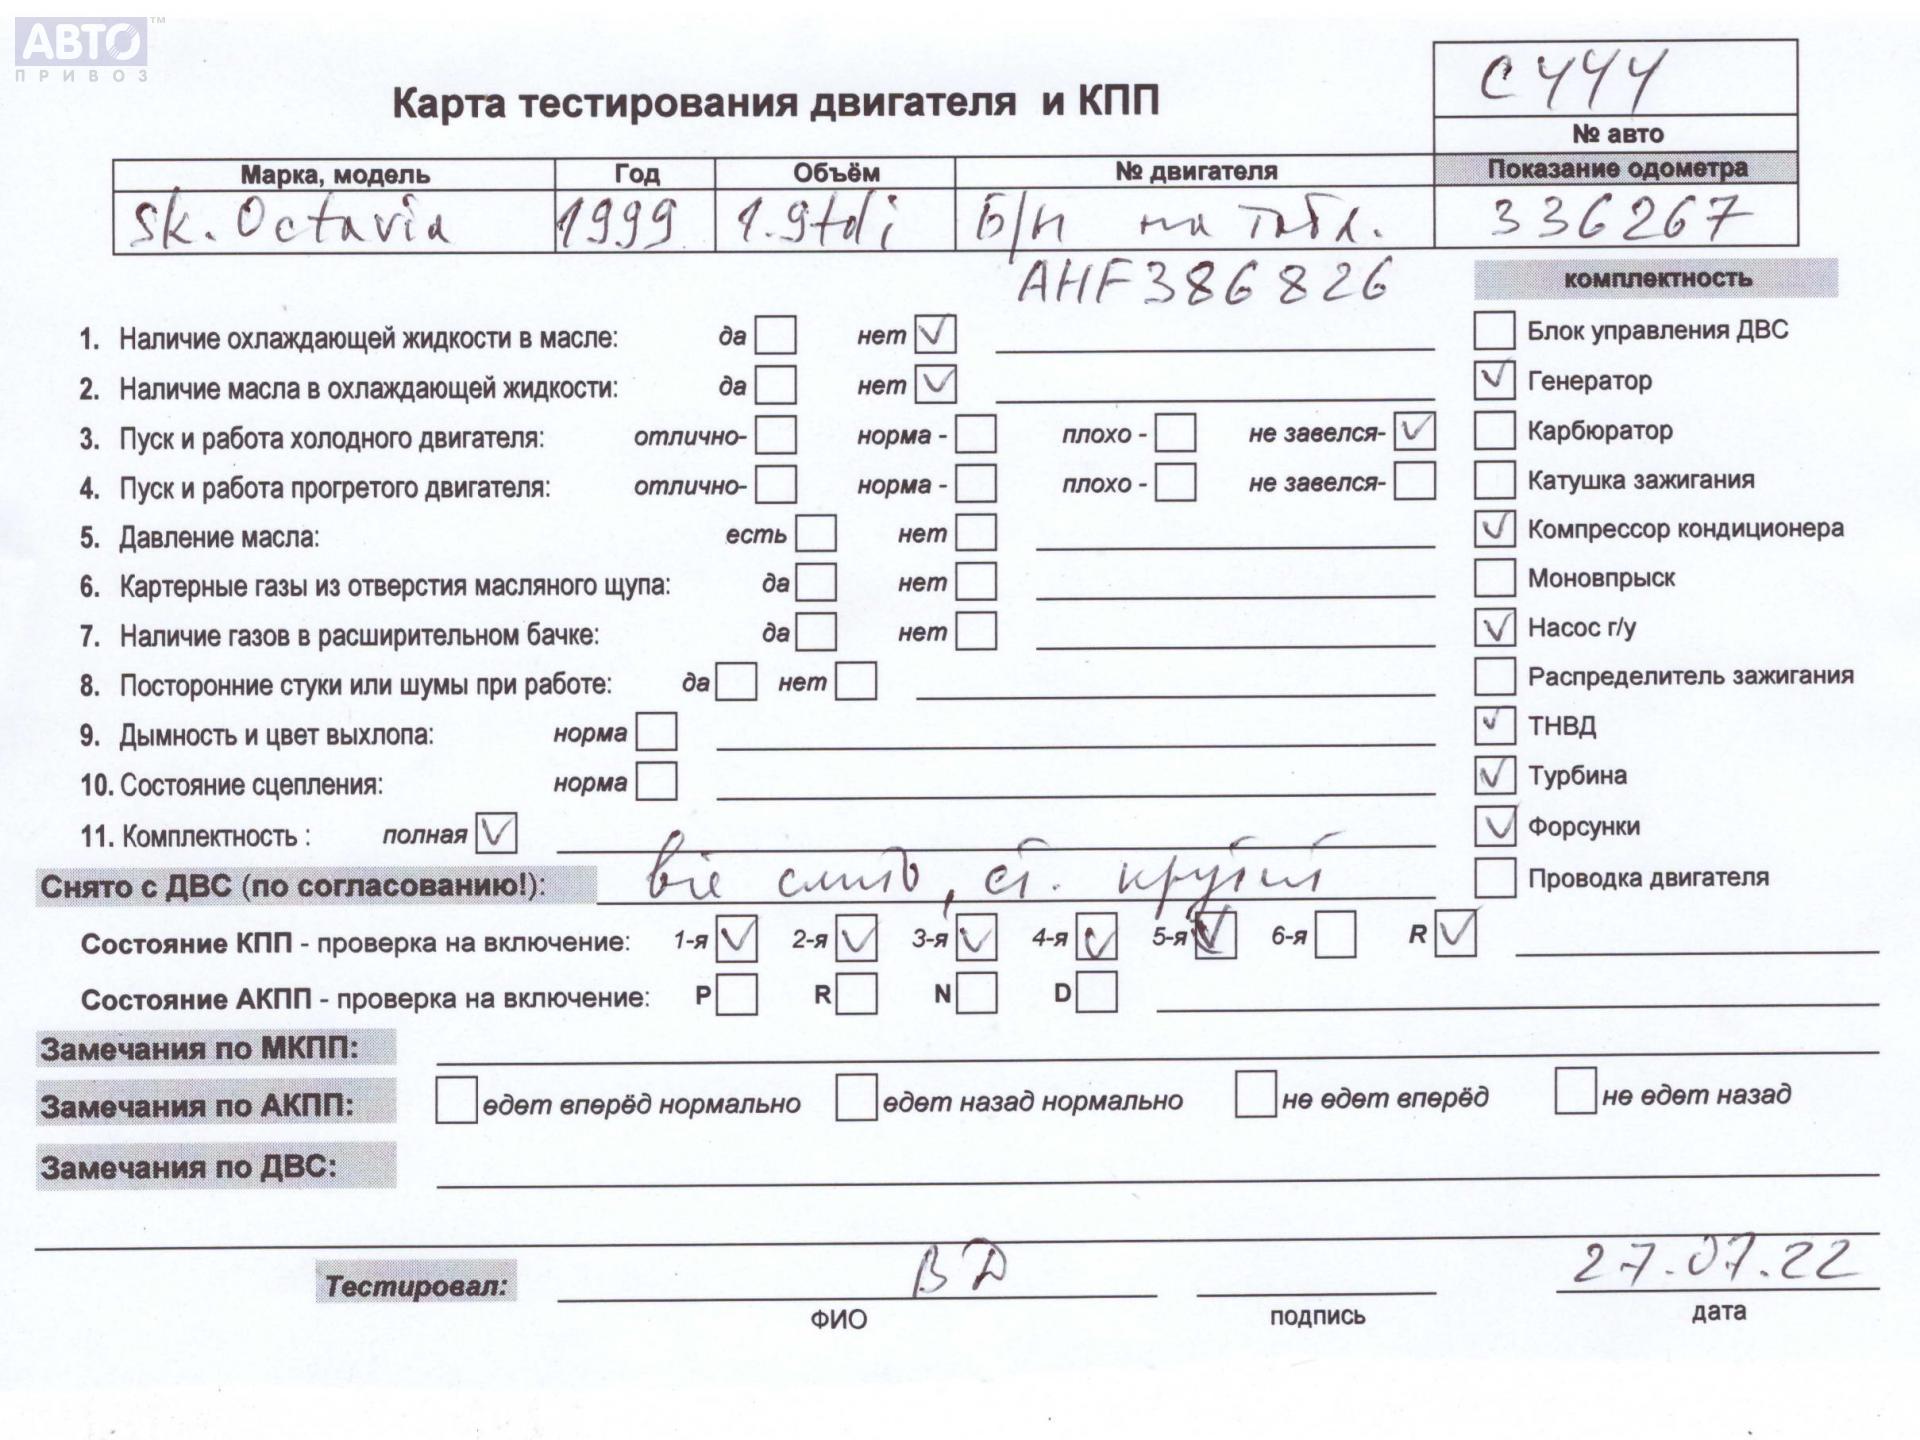 АВТО™
ПРИВОЗ
Карта тестирования двигателя и КПП
С444
№ авто
Марка, модель Год Объём № двигателя Показание одометра
Sk. Octavia 1999 1.9tdi Б/н на табл. 336267
AHF386826
комплектность
1. Наличие охлаждающей жидкости в масле: да нет ✓
Блок управления ДВС
2. Наличие масла в охлаждающей жидкости: да нет ✓
✓ Генератор
3. Пуск и работа холодного двигателя: отлично- норма - плохо - не завелся- ✓
Карбюратор
4. Пуск и работа прогретого двигателя: отлично- норма - плохо - не завелся-
Катушка зажигания
5. Давление масла: есть нет
✓ Компрессор кондиционера
6. Картерные газы из отверстия масляного щупа: да нет
Моновпрыск
7. Наличие газов в расширительном бачке: да нет
✓ Насос г/у
8. Посторонние стуки или шумы при работе: да нет
Распределитель зажигания
9. Дымность и цвет выхлопа: норма
✓ ТНВД
10. Состояние сцепления: норма
✓ Турбина
11. Комплектность : полная ✓
✓ Форсунки
Снято с ДВС (по согласованию!): ст.
Проводка двигателя
Состояние КПП - проверка на включение: 1-я ✓ 2-я ✓ 3-я ✓ 4-я ✓ 5-я ✓ 6-я R ✓
Состояние АКПП - проверка на включение: P R N D
Замечания по МКПП:
Замечания по АКПП: едет вперёд нормально едет назад нормально не едет вперёд не едет назад
Замечания по ДВС:
Тестировал: ВД 27.07.22
ФИО подпись дата